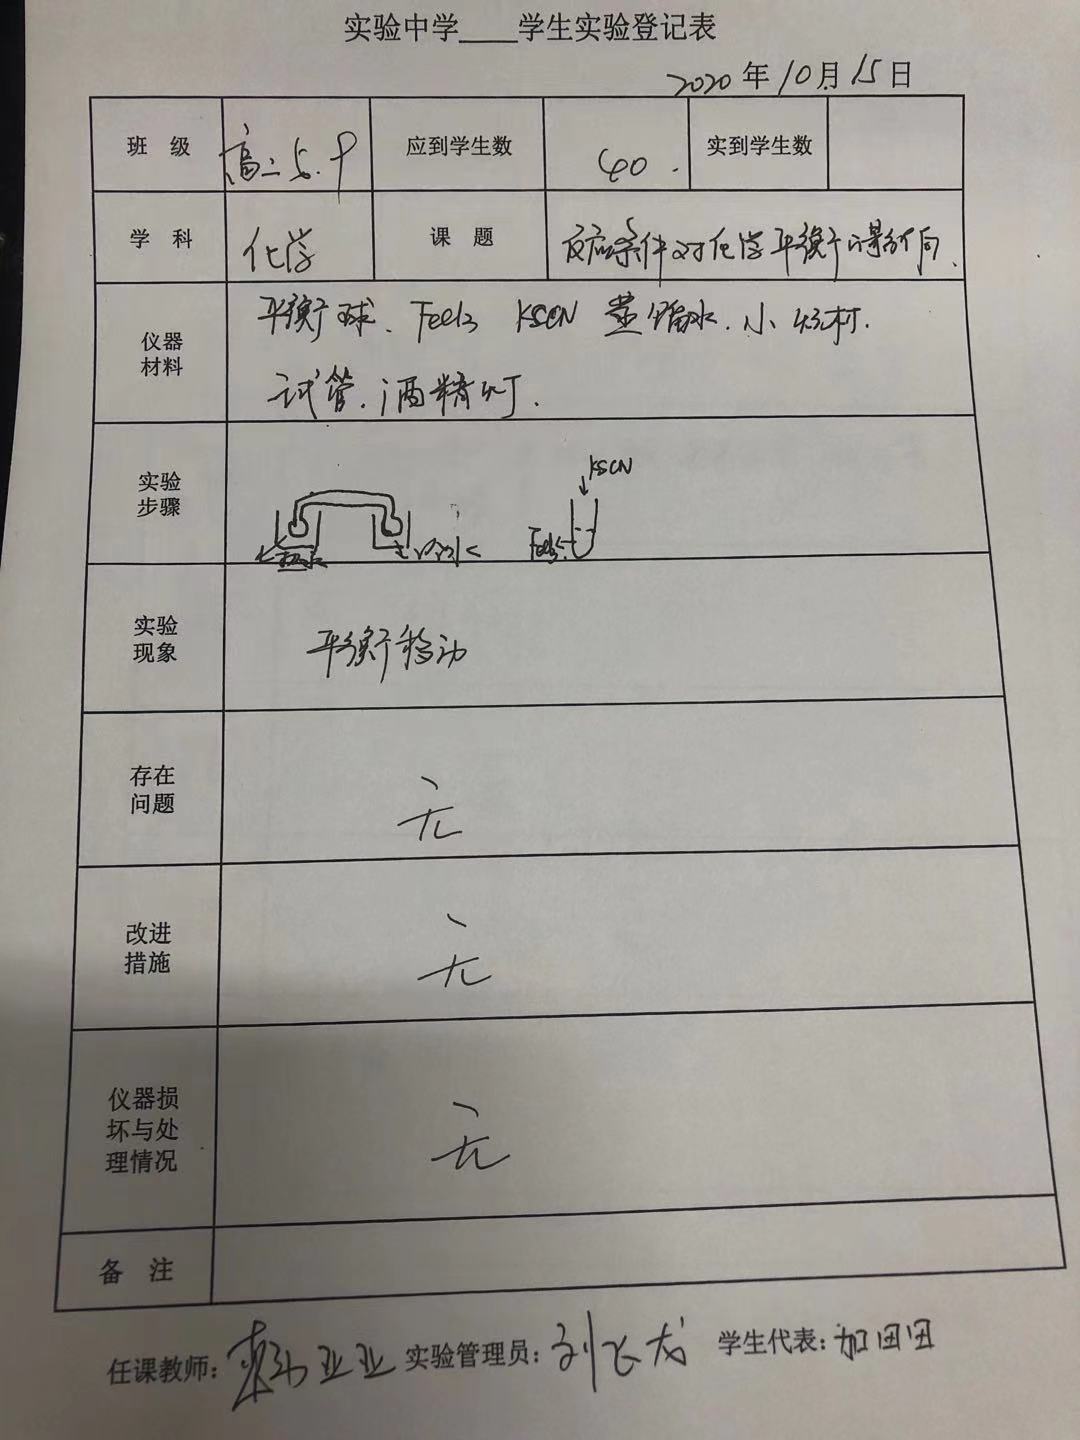 实验中学____学生实验登记表
2020年10月15日
班 级 高二5.9 应到学生数 40. 实到学生数
学 科 化学 课 题 反应条件对化学平衡的影响.
仪器材料 平衡球、FeCl3 KSCN 蒸馏水.小烧杯.
试管.酒精灯.
实验步骤
KSCN
FeCl3
实验现象 平衡移动
存在问题 无
改进措施 无
仪器损坏与处理情况 无
备 注
任课教师: 亚亚 实验管理员: 刘飞龙 学生代表: 加田田